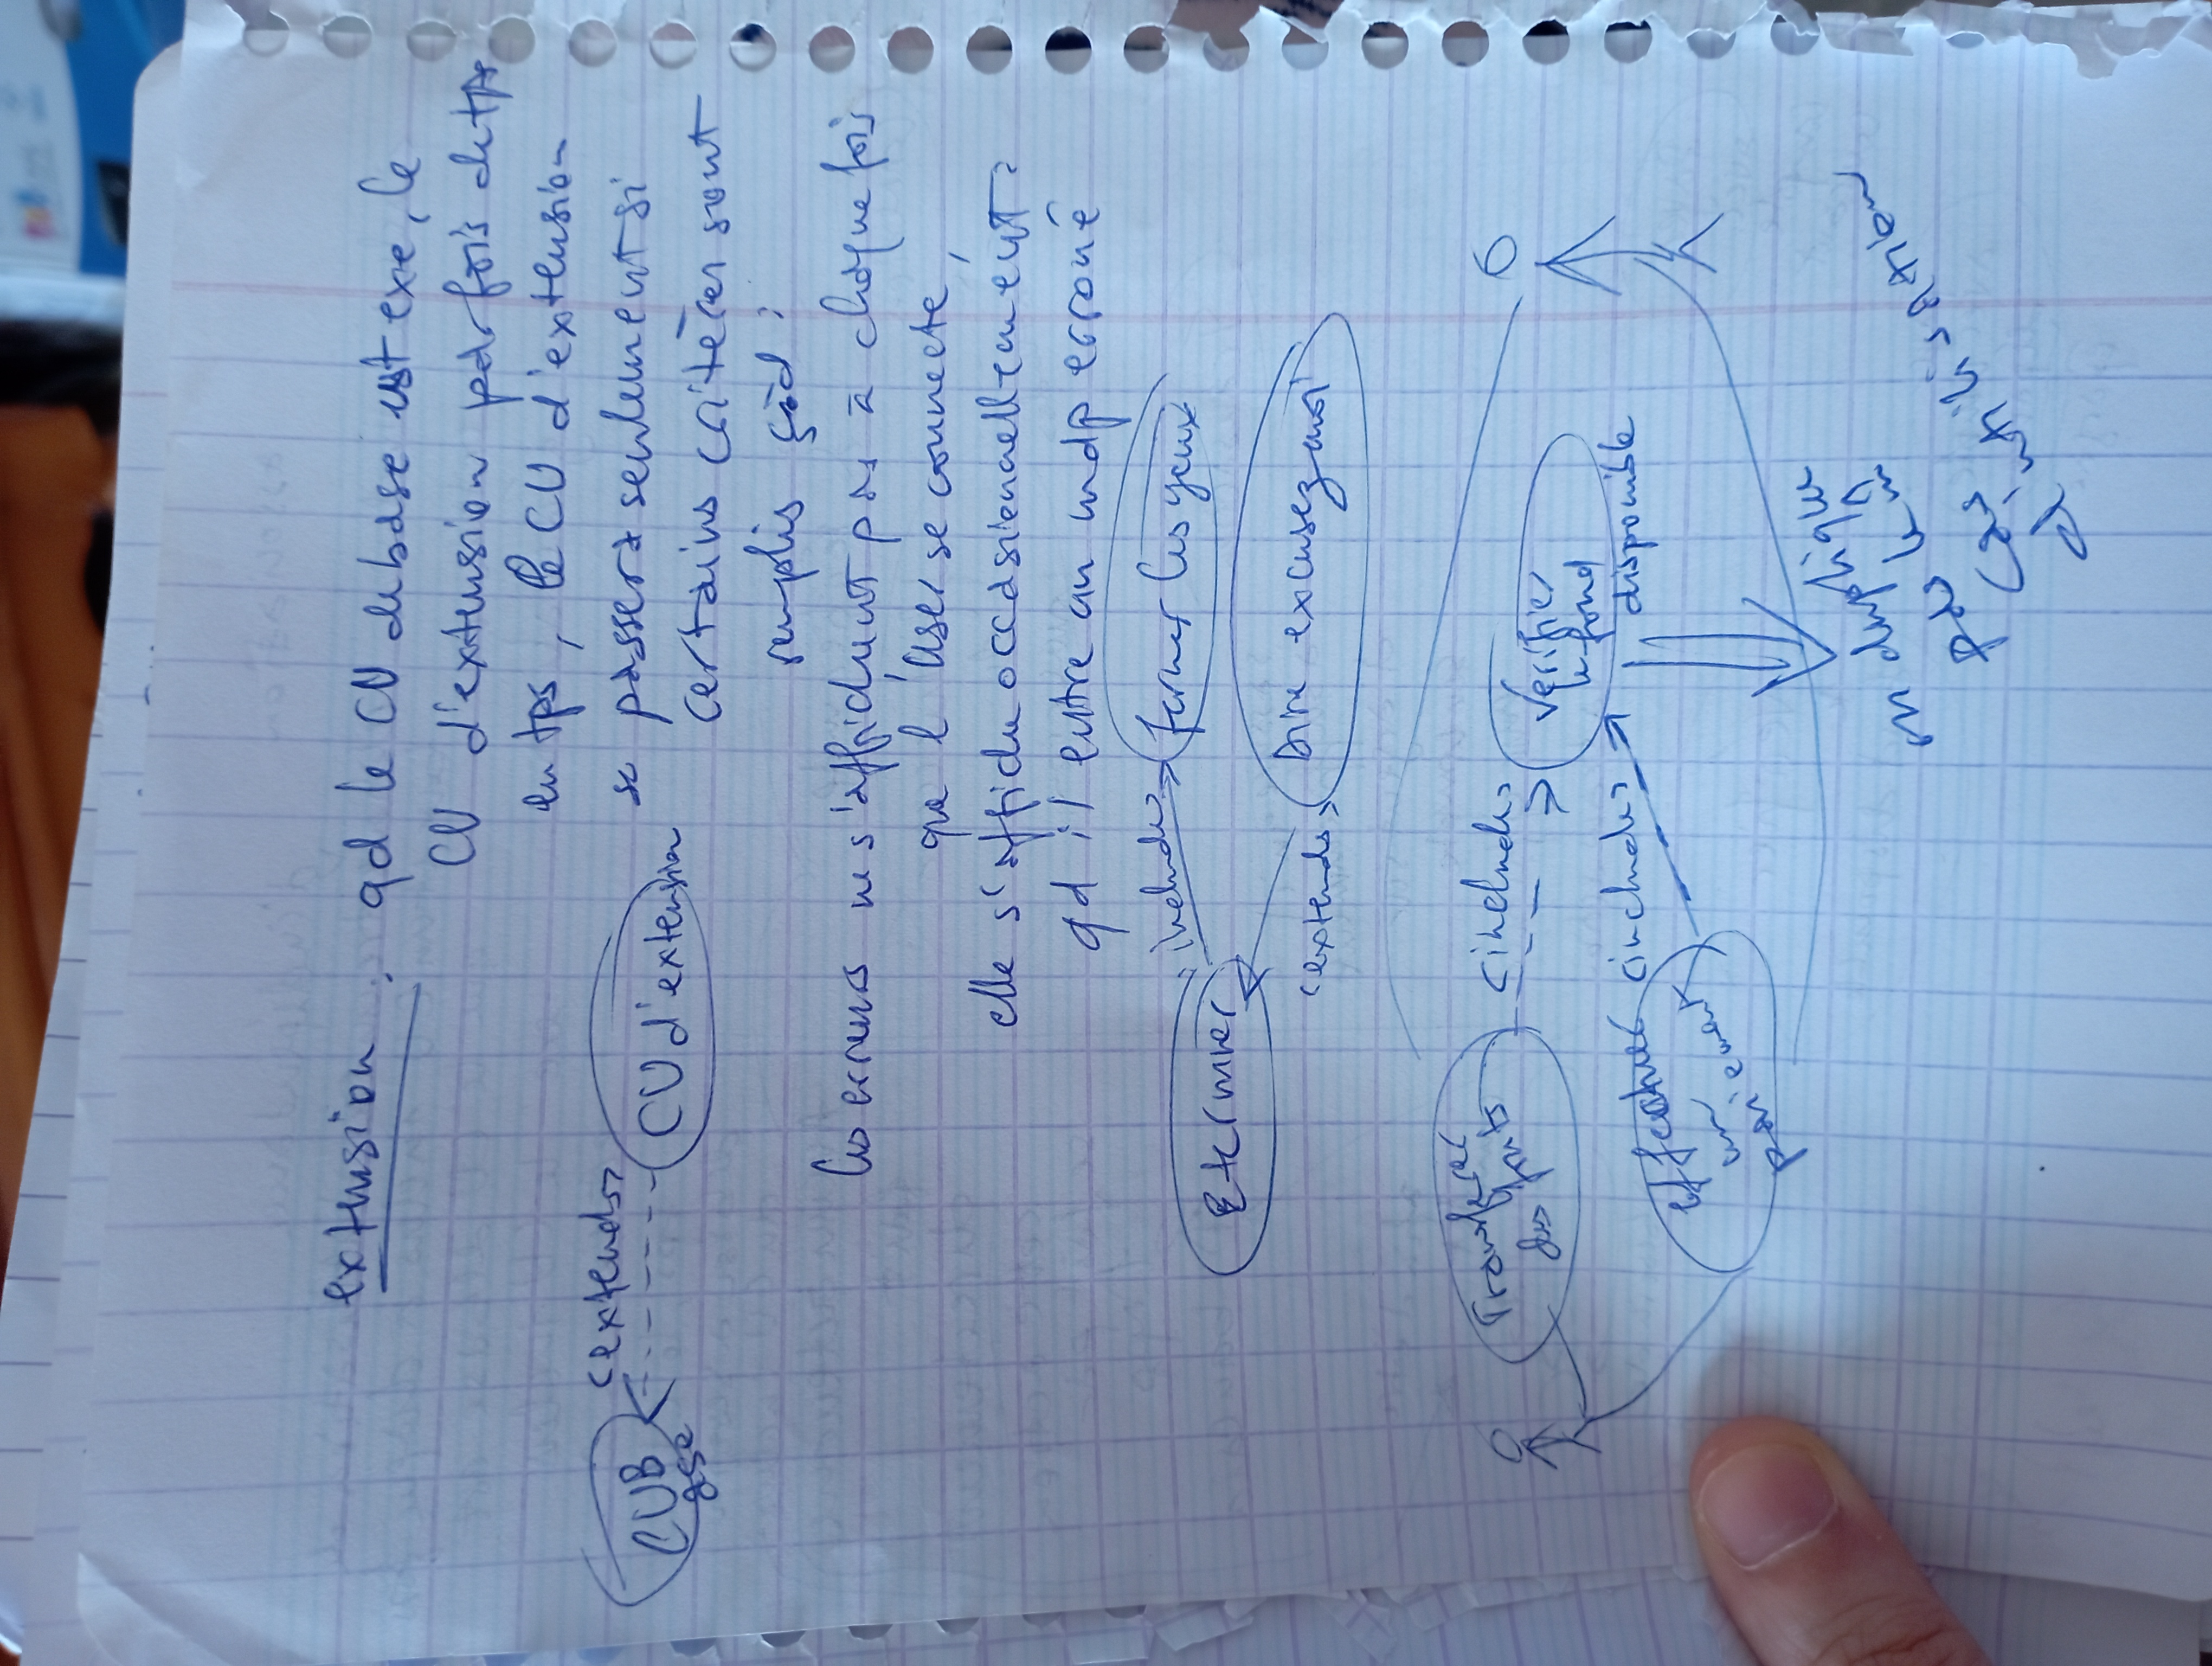 extension : qd le CU de base est exe, le
CU d'extension parfois de tps
en tps, le CU d'extension
se passera seulement si
certains critères sont
remplis càd :
<extends>
CUB
ase
CU d'extension
les erreurs ne s'affichent pas à chaque fois
que l'user se connecte,
elle s'affiche occasionnellement :
qd il entre un mdp erroné
includes
fermer les yeux
Eternuer
Dire excusez moi
<extends>
Transferer
des fonts
<includes>
Verifier
le fond
disponible
effectuer
un
paiement
<includes>
on duplique
pas le m̂
cas
d'utilisation